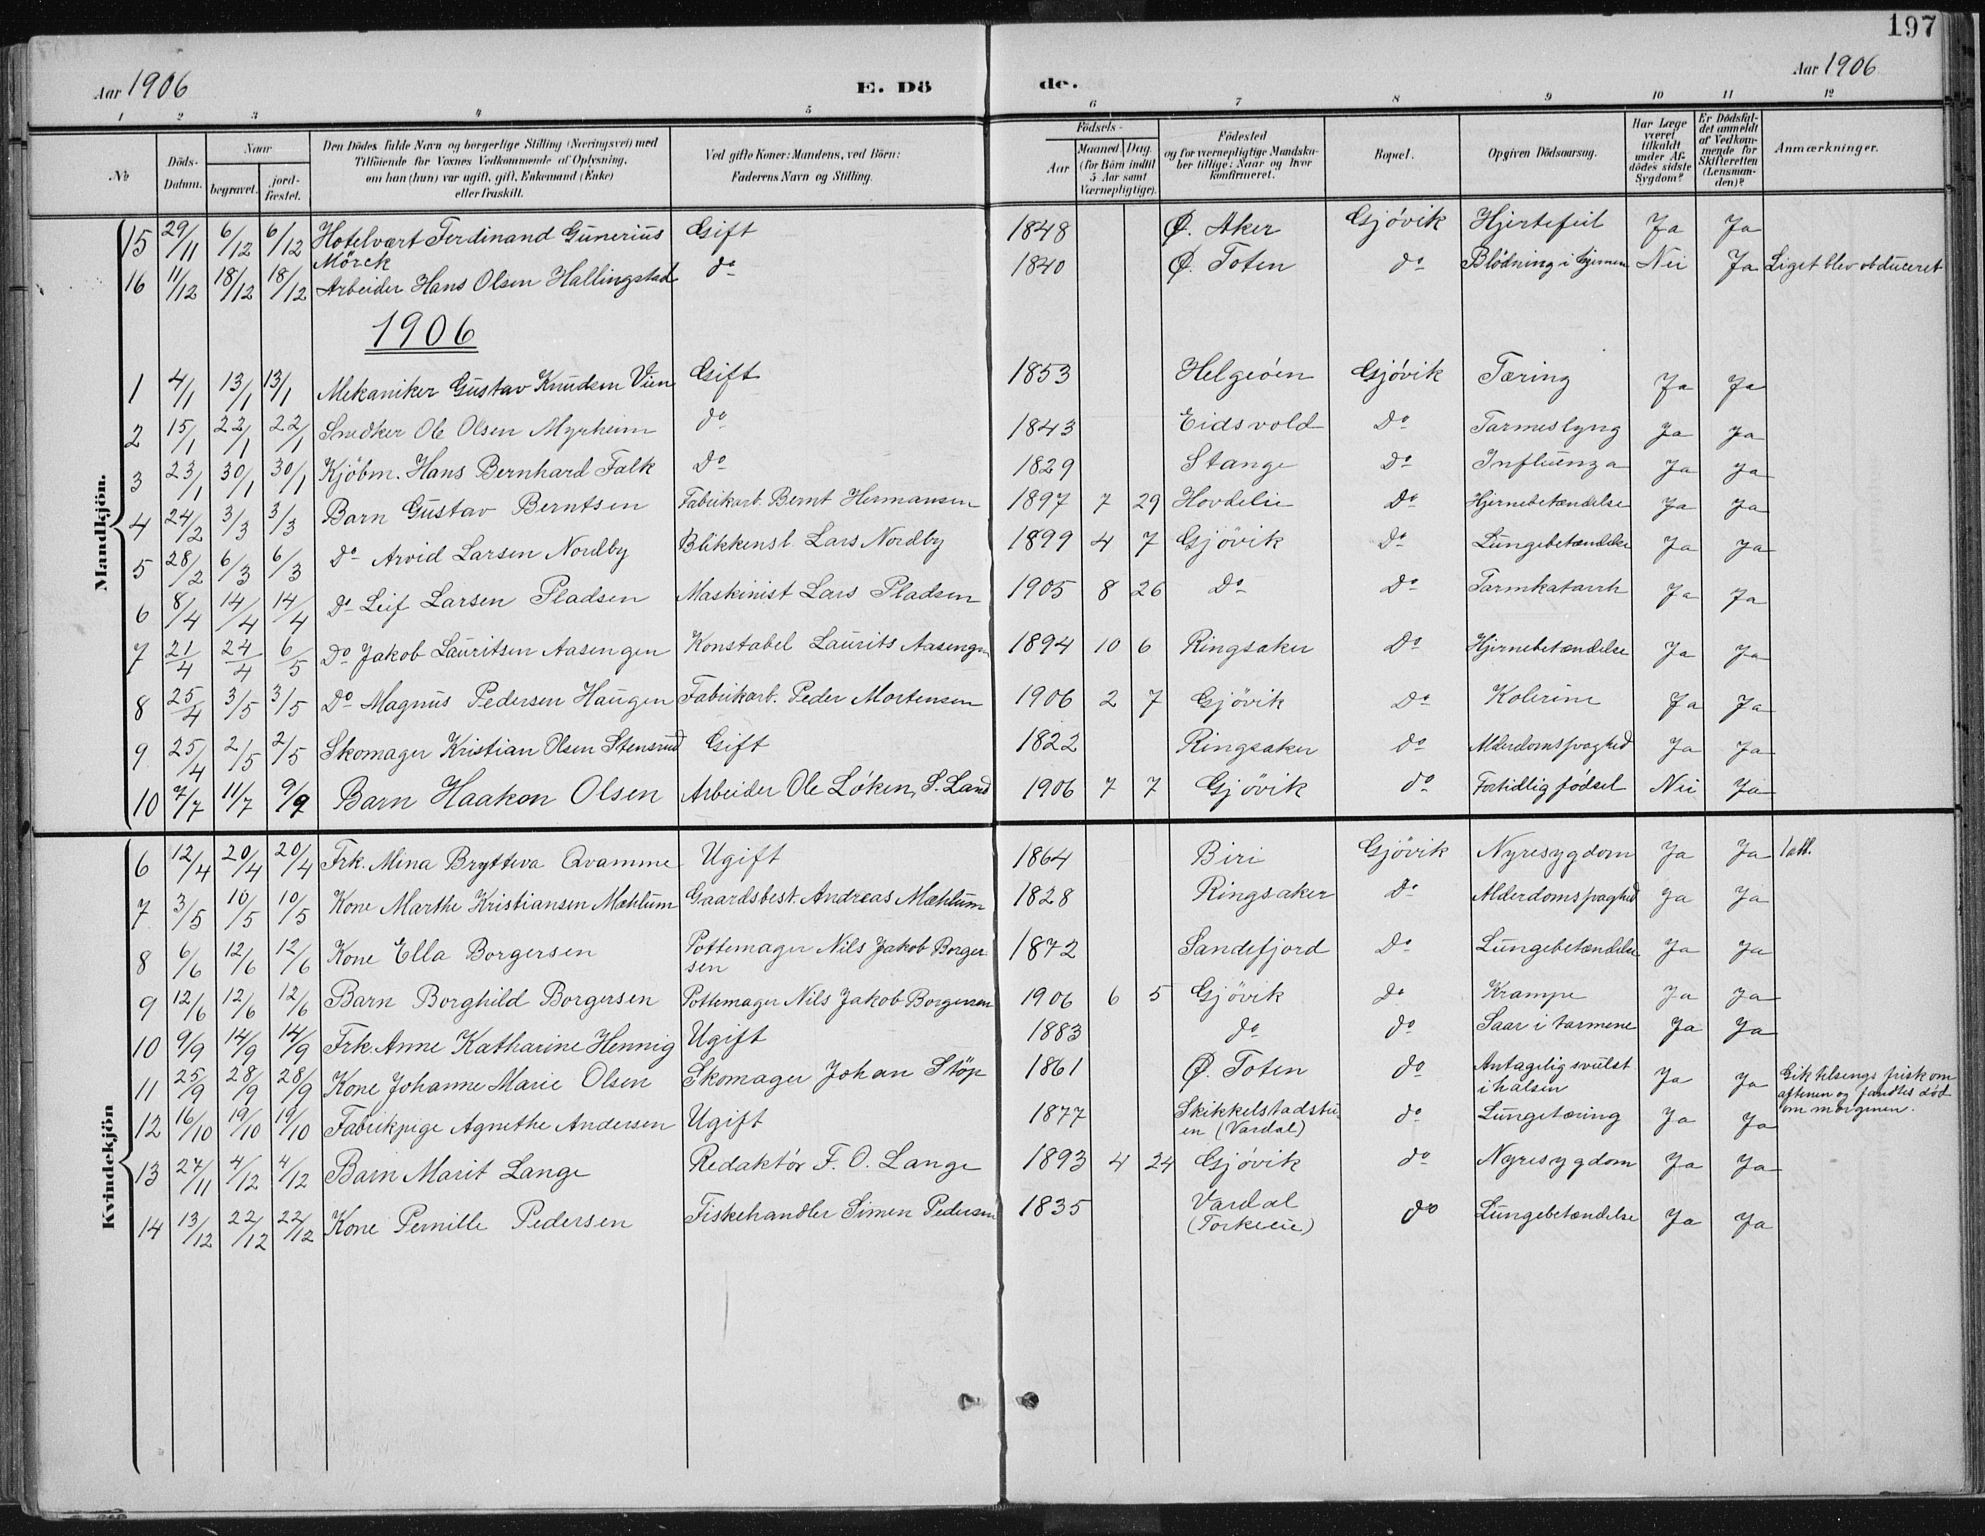 197
Aar 1906 E. Dö de. Aar 1906
1 2 3 4 5 6 7 8 9 10 11 12
No
Döds-Datum.
Naar
begravet.
jord-fæstet.
Den Dödes fulde Navn og borgerlige Stilling (Næringsvei) med
Tilföiende for Voxnes Vedkommende af Oplysning,
om han (hun) var ugift, gift, Enkemand (Enke)
eller fraskilt.
Ved gifte Koner: Mandens, ved Börn:
Faderens Navn og Stilling.
Födsels-
Aar
Maaned. Dag.
(for Börn indtil
5 Aar samt
Værnepligtige).
Födested
og for værnepligtige Mandska-
ber tillige: Naar og hvor
konfirmeret.
Bopæl.
Opgiven Dödsaarsag.
Har Læge
været
tilkaldt
under Af-
dödes sidste
Sygdom?
Er Dödsfal-
det anmeldt
af Vedkom-
mende for
Skifteretten
(Lensman-
den)?
Anmærkninger.
Mandkjön.
15 29/11 6/12 6/12 Hotelvært Ferdinand Gunerius Gift 1848 Ø. Aker Gjövik Hjertefeil Ja Ja
Mörck
16 11/12 18/12 18/12 Arbeider Hans Olsen Hallingstad do 1840 Ø. Toten do Blödning i hjernen Nei Ja Liget blev obduceret
1906
1 4/1 13/1 13/1 Mekaniker Gustav Knudsen Vien Gift 1853 Helgeöen Gjövik Tæring Ja Ja
2 15/1 22/1 22/1 Snedker Ole Olsen Myrheim do 1843 Eidsvold Do Tarmeslyng Ja Ja
3 23/1 30/1 30/1 Kjöbm. Hans Bernhard Falk Do 1829 Stange Do Influenza Ja Ja
4 24/2 3/3 3/3 Barn Gustav Berntsen Fabrikarb. Bernt Hermansen 1897 7 29 Hovdelie Do Hjernebetændelse Ja Ja
5 28/2 6/3 6/3 Do Arvid Larsen Nordby Blikkensl. Lars Nordby 1899 4 7 Gjövik Do Lungebetændelse Ja Ja
6 8/4 14/4 14/4 Do Leif Larsen Pladsen Maskinist Lars Pladsen 1905 8 26 Do Do Tarmkatarrh Ja Ja
7 21/4 24/4 6/5 Do Jakob Lauritsen Aasengen Konstabel Laurits Aasengen 1894 10 6 Ringsaker Do Hjernebetændelse Ja Ja
8 25/4 3/5 3/5 Do Magnus Pedersen Haugen Fabrikarb. Peder Mortensen 1906 2 7 Gjövik Do Kolerine Ja Ja
9 25/4 2/5 2/5 Skomager Kristian Olsen Stensrud Gift 1822 Ringsaker do Alderdomssvaghed Ja Ja
10 7/7 11/7 9/9 Barn Haakon Olsen Arbeider Ole Löken, S. Land 1906 7 7 Gjövik do Fortidlig födsel Nei Ja
Kvindekjön
6 12/4 20/4 20/4 Frk. Mina Brytteva Qvamme Ugift 1864 Biri Gjövik Nyresygdom Ja Ja 1 att.
7 3/5 10/5 10/5 Kone Marthe Kristiansen Mæhlum Gaardsbest. Andreas Mæhlum 1828 Ringsaker Do Alderdomssvaghed Ja Ja
8 6/6 12/6 12/6 Kone Ella Borgersen Pottemager Nils Jakob Borger 1872 Sandefjord Do Lungebetændelse Ja Ja
sen
9 12/6 12/6 12/6 Barn Borghild Borgersen Pottemager Nils Jakob Borgersen 1906 6 5 Gjövik do Krampe Ja Ja
10 9/9 14/9 14/9 Frk Anne Katharine Hennig Ugift 1883 do do Saar i tarmene Ja Ja
11 25/9 28/9 28/9 Kone Johanne Marie Olsen Skomager Johan Stöp 1861 Ø. Toten do Antagelig svulst Ja Ja Gik tilsengs frisk om
i halsen aftenen og fandtes död
om morgenen.
12 16/10 19/10 19/10 Fabrikpige Agnethe Andersen Ugift 1877 Skikkelstadstu do Lungetæring Ja Ja
en (Vardal)
13 27/11 4/12 4/12 Barn Marit Lange Redaktör F. O. Lange 1893 4 24 Gjövik do Nyresygdom Ja Ja
14 13/12 22/12 22/12 Kone Pernille Pedersen Fiskehandler Simen Pedersen 1835 Vardal do Lungebetændelse Ja Ja
(Torkeie)